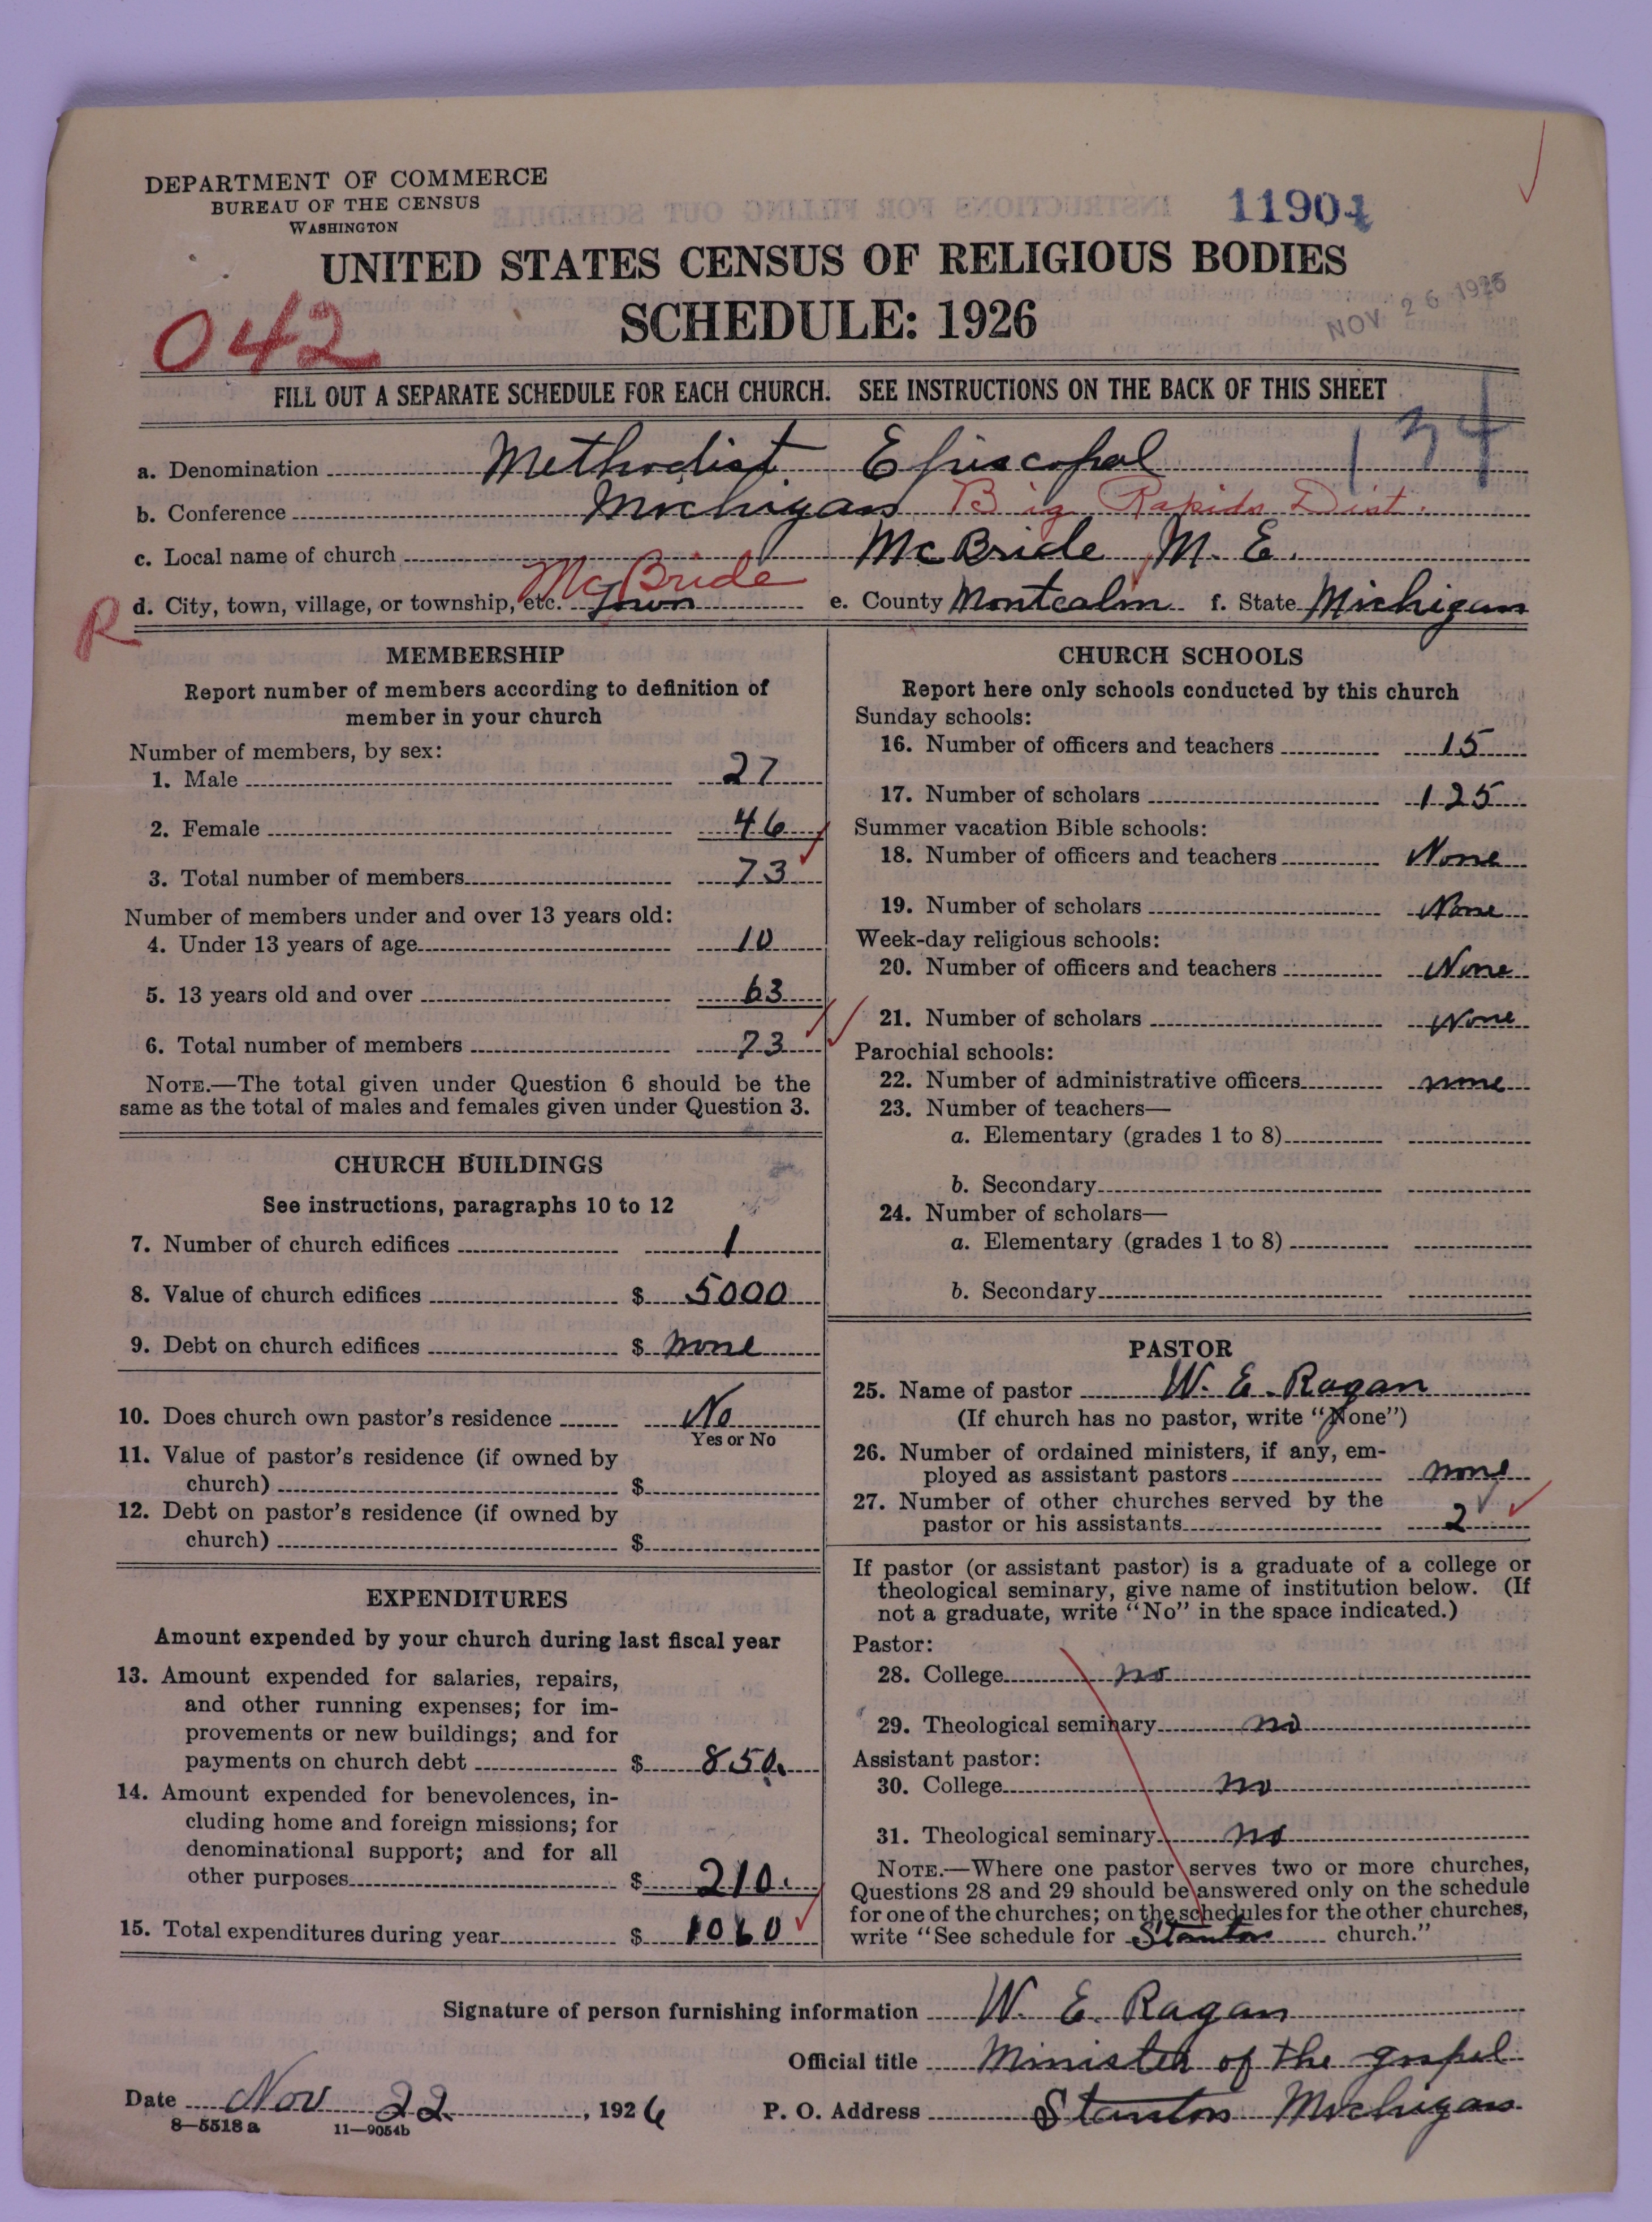 DEPARTMENT OF COMMERCE
BUREAU OF THE CENSUS
WASHINGTON
11901
UNITED STATES CENSUS OF RELIGIOUS BODIES
SCHEDULE: 1926
NOV 26 1926
042
FILL OUT A SEPARATE SCHEDULE FOR EACH CHURCH. SEE INSTRUCTIONS ON THE BACK OF THIS SHEET
134
a. Denomination Methodist Episcopal
b. Conference Michigan Big Rapids Dist.
c. Local name of church McBride M. E.
R d. City, town, village, or township, etc. McBride Town e. County Montcalm f. State Michigan
MEMBERSHIP
Report number of members according to definition of
member in your church
Number of members, by sex:
1. Male 27
2. Female 46
3. Total number of members 73
Number of members under and over 13 years old:
4. Under 13 years of age 10
5. 13 years old and over 63
6. Total number of members 73
NOTE.—The total given under Question 6 should be the
same as the total of males and females given under Question 3.
CHURCH BUILDINGS
See instructions, paragraphs 10 to 12
7. Number of church edifices 1
8. Value of church edifices $ 5000
9. Debt on church edifices $ none
10. Does church own pastor's residence No
Yes or No
11. Value of pastor's residence (if owned by
church) $
12. Debt on pastor's residence (if owned by
church) $
EXPENDITURES
Amount expended by your church during last fiscal year
13. Amount expended for salaries, repairs,
and other running expenses; for im-
provements or new buildings; and for
payments on church debt $ 850.
14. Amount expended for benevolences, in-
cluding home and foreign missions; for
denominational support; and for all
other purposes $ 210.
15. Total expenditures during year $ 1060
CHURCH SCHOOLS
Report here only schools conducted by this church
Sunday schools:
16. Number of officers and teachers 15
17. Number of scholars 125
Summer vacation Bible schools:
18. Number of officers and teachers None
19. Number of scholars None
Week-day religious schools:
20. Number of officers and teachers None
21. Number of scholars None
Parochial schools:
22. Number of administrative officers none
23. Number of teachers—
a. Elementary (grades 1 to 8)
b. Secondary
24. Number of scholars—
a. Elementary (grades 1 to 8)
b. Secondary
PASTOR
25. Name of pastor W. E. Ragan
(If church has no pastor, write "None")
26. Number of ordained ministers, if any, em-
ployed as assistant pastors none
27. Number of other churches served by the
pastor or his assistants 2
If pastor (or assistant pastor) is a graduate of a college or
theological seminary, give name of institution below. (If
not a graduate, write "No" in the space indicated.)
Pastor:
28. College no
29. Theological seminary no
Assistant pastor:
30. College no
31. Theological seminary no
NOTE.—Where one pastor serves two or more churches,
Questions 28 and 29 should be answered only on the schedule
for one of the churches; on the schedules for the other churches,
write "See schedule for Stanton church."
Signature of person furnishing information W. E. Ragan
Official title Minister of the gospel
Date Nov 22, 1926 P. O. Address Stanton Michigan
8—5518 a 11—9054b